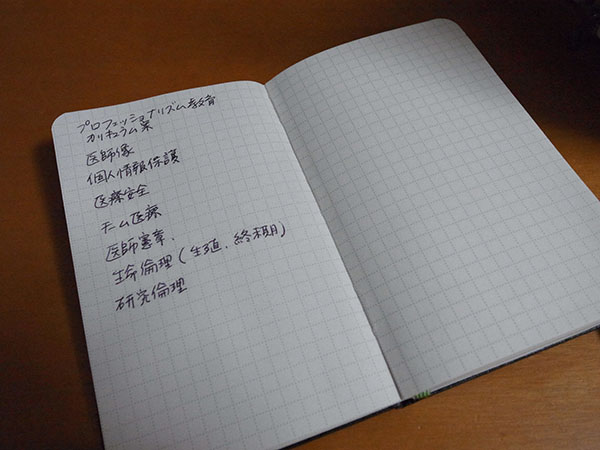 プロフェッショナリズム教育
カリキュラム案
医師像
個人情報保護
医療安全
チーム医療
医師憲章、
生命倫理(生殖、終末期)
研究倫理